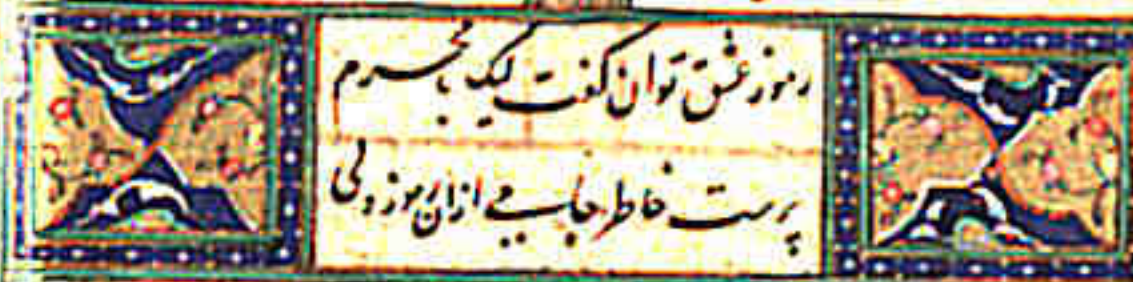 رموز عشق توان گفت لیک با محرم
پرست خاطر جامی ازان رموز ولی